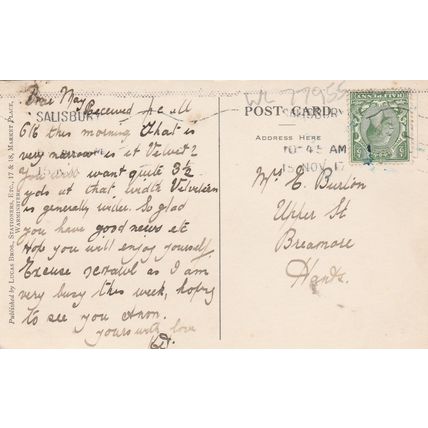 Dear May
Received
6/6 this morning That is
very narrow is it Velvet?
You will want quite 3½
yds at that width Velveteen
is generally wider. So glad
you have good news etc
Hope you will enjoy yourself.
Excuse scrawl as I am
very busy this week, hoping
to see you anon.
yours with love
SALISBURY
Published by Lucas Bros., Stationers, Etc., 17 & 18, Market Place,
Warminster.
WL 77955
POST CARD.
ADDRESS HERE
SALISBURY
10 45 AM
15 NOV 17
HALFPENNY
Mrs E. Burton
Upper St
Breamore
Hants.